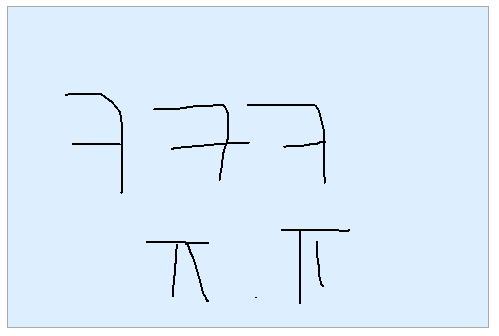 ㅋㅋㅋ
ㅠ.ㅠ